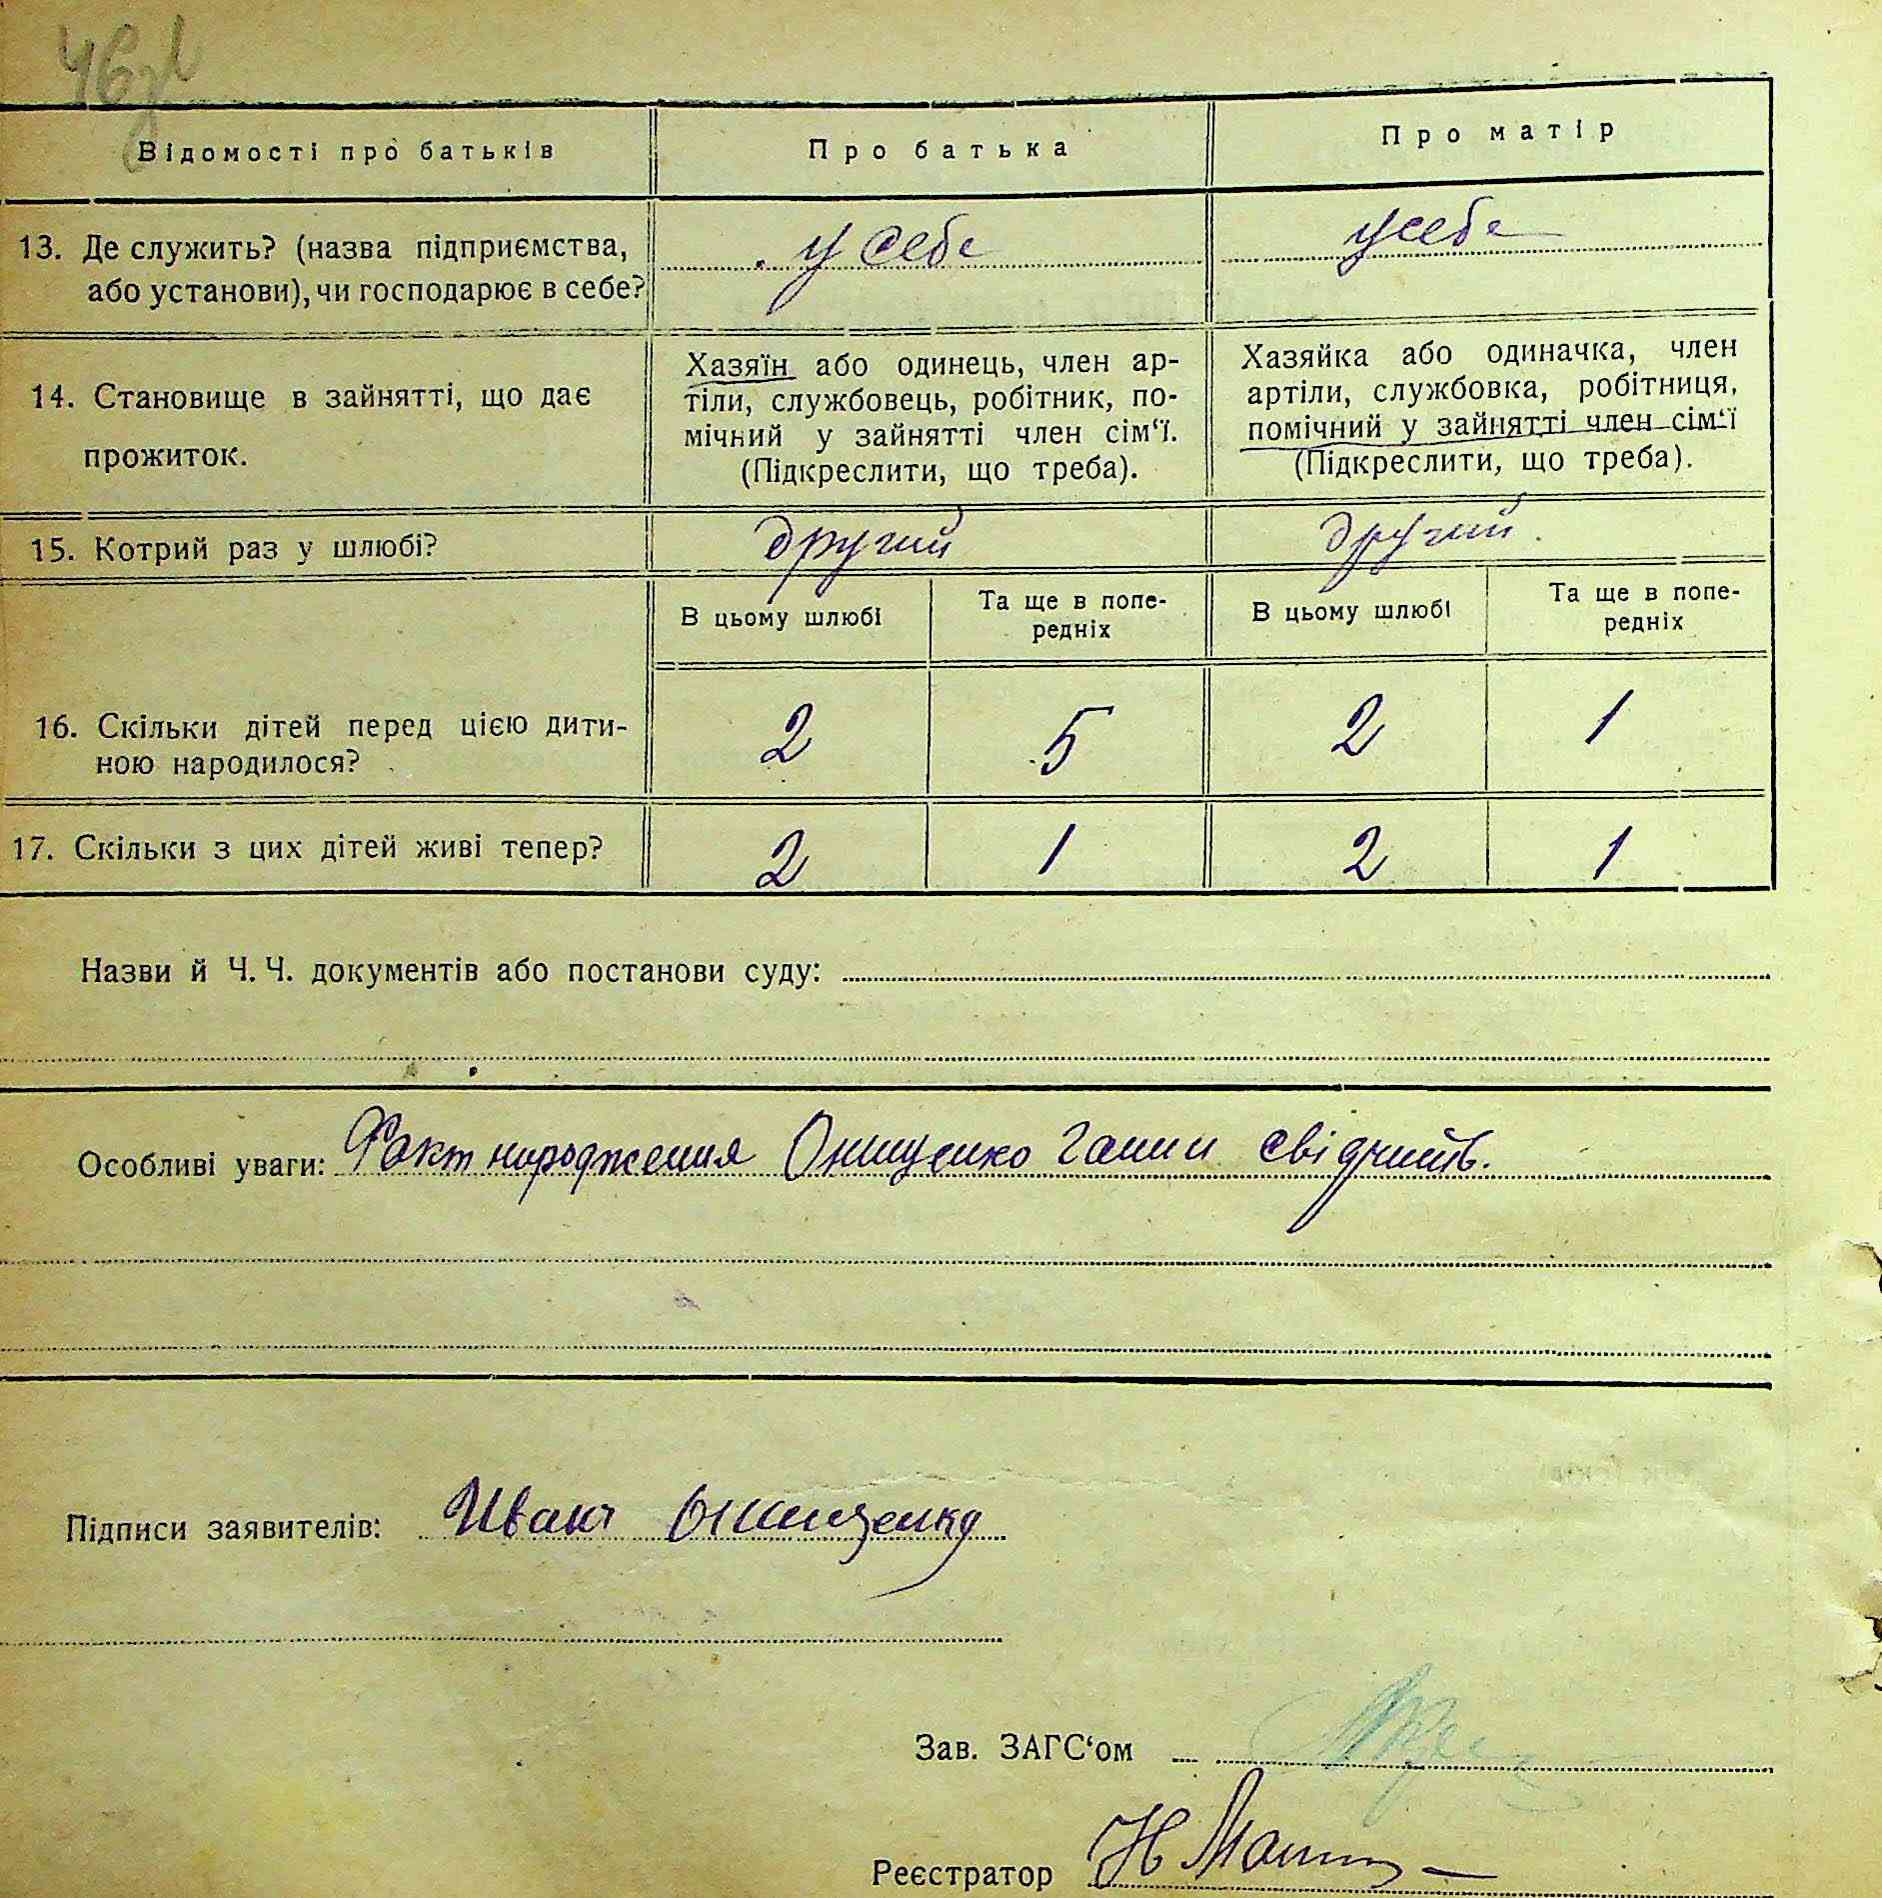 46
Відомості про батьків
Про батька
Про матір
13. Де служить? (назва підприємства,
або установи), чи господарює в себе?
у себе
усебе
14. Становище в зайнятті, що дає
прожиток.
Хазяїн або одинець, член ар-
тіли, службовець, робітник, по-
мічний у зайнятті член сім‘ї.
(Підкреслити, що треба).
Хазяйка або одиначка, член
артіли, службовка, робітниця,
помічний у зайнятті член сім‘ї
(Підкреслити, що треба).
15. Котрий раз у шлюбі?
другий
другий.
В цьому шлюбі
Та ще в попе-
редніх
В цьому шлюбі
Та ще в попе-
редніх
16. Скільки дітей перед цією дити-
ною народилося?
2
5
2
1
17. Скільки з цих дітей живі тепер?
2
1
2
1
Назви й Ч. Ч. документів або постанови суду:
Особливі уваги: Факт народження Онищенко Ганни свідчить.
Підписи заявителів: Иван Онищенко
Зав. ЗАГС‘ом
Реєстратор Н